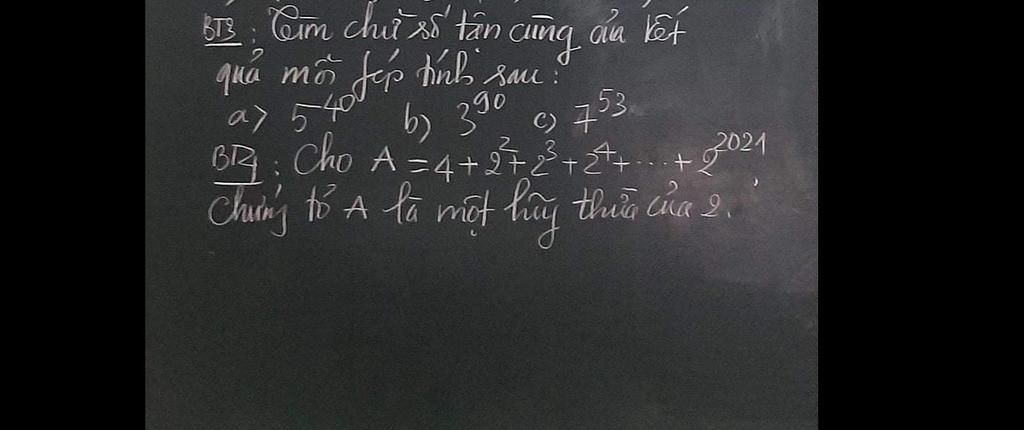 BT3: Tìm chữ số tận cùng của kết
quả mỗi fép tính sau:
a) 5^40 b) 3^90 c) 7^53
BT4: Cho A = 4 + 2^2 + 2^3 + 2^4 + ... + 2^2021,
chứng tỏ A là một lũy thừa của 2.